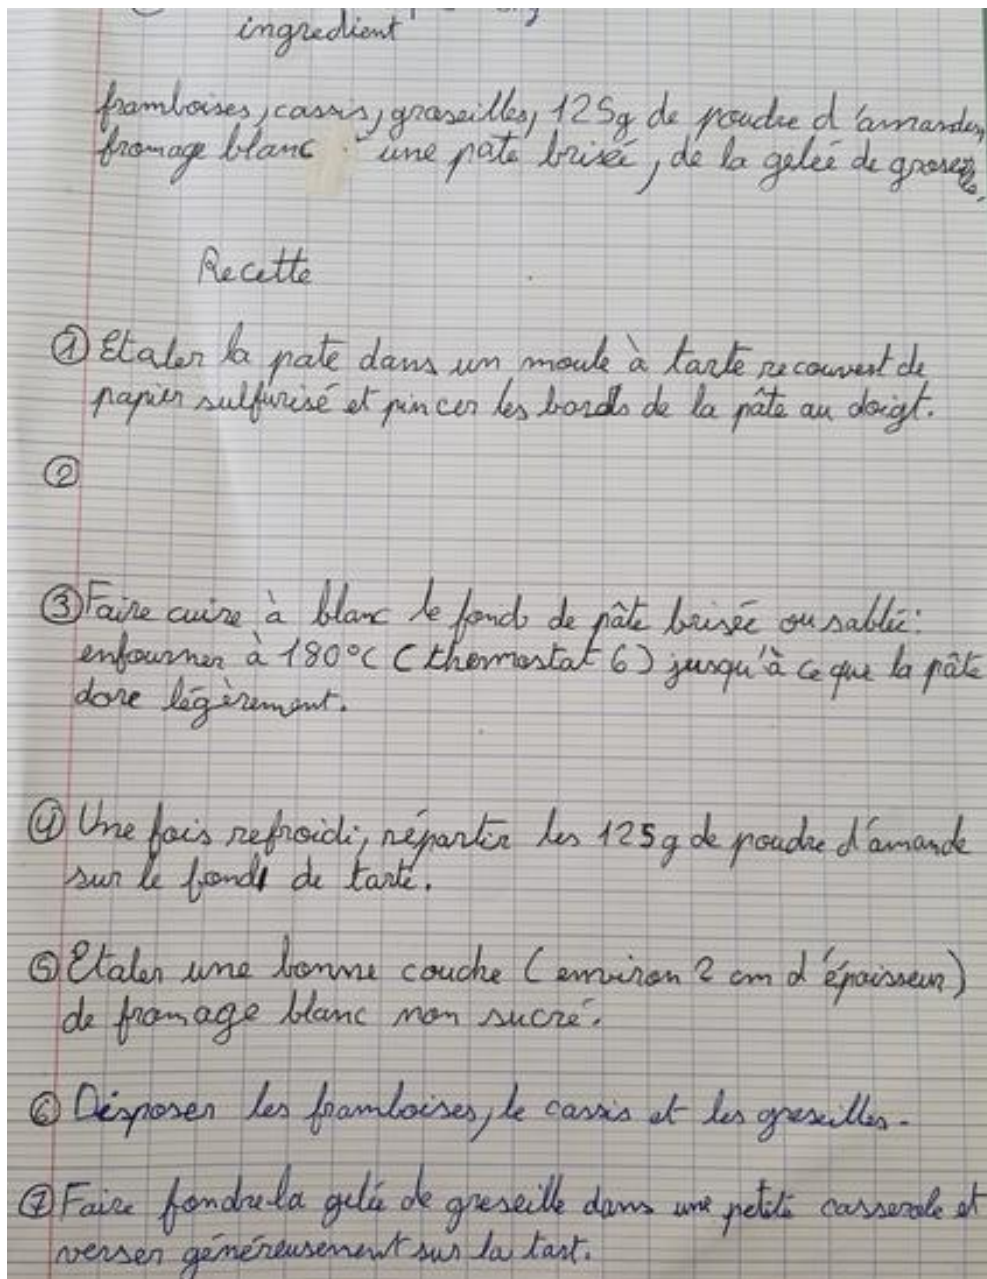 ingredient
framboises, cassis, groseilles, 125g de poudre d'amandes,
fromage blanc une pate brisée, de la geleé de groseilles.
Recette
① Etaler la pate dans un moule à tarte recouvert de
papier sulfurisé et pincer les bords de la pâte au doigt.
②
③ Faire cuire à blanc le fond de pâte brisée ou sablée:
enfourner à 180°C (thermostat 6) jusqu'à ce que la pâte
dore légèrement.
④ Une fois refroidi, répartir les 125g de poudre d'amande
sur le fond de tarte.
⑤ Etaler une bonne couche (environ 2 cm d'épaisseur)
de fromage blanc non sucré.
⑥ Disposer les framboises, le cassis et les greseilles.
⑦ Faire fondre la gelée de greseille dans une petite casserole et
verser généreusement sur la tart.